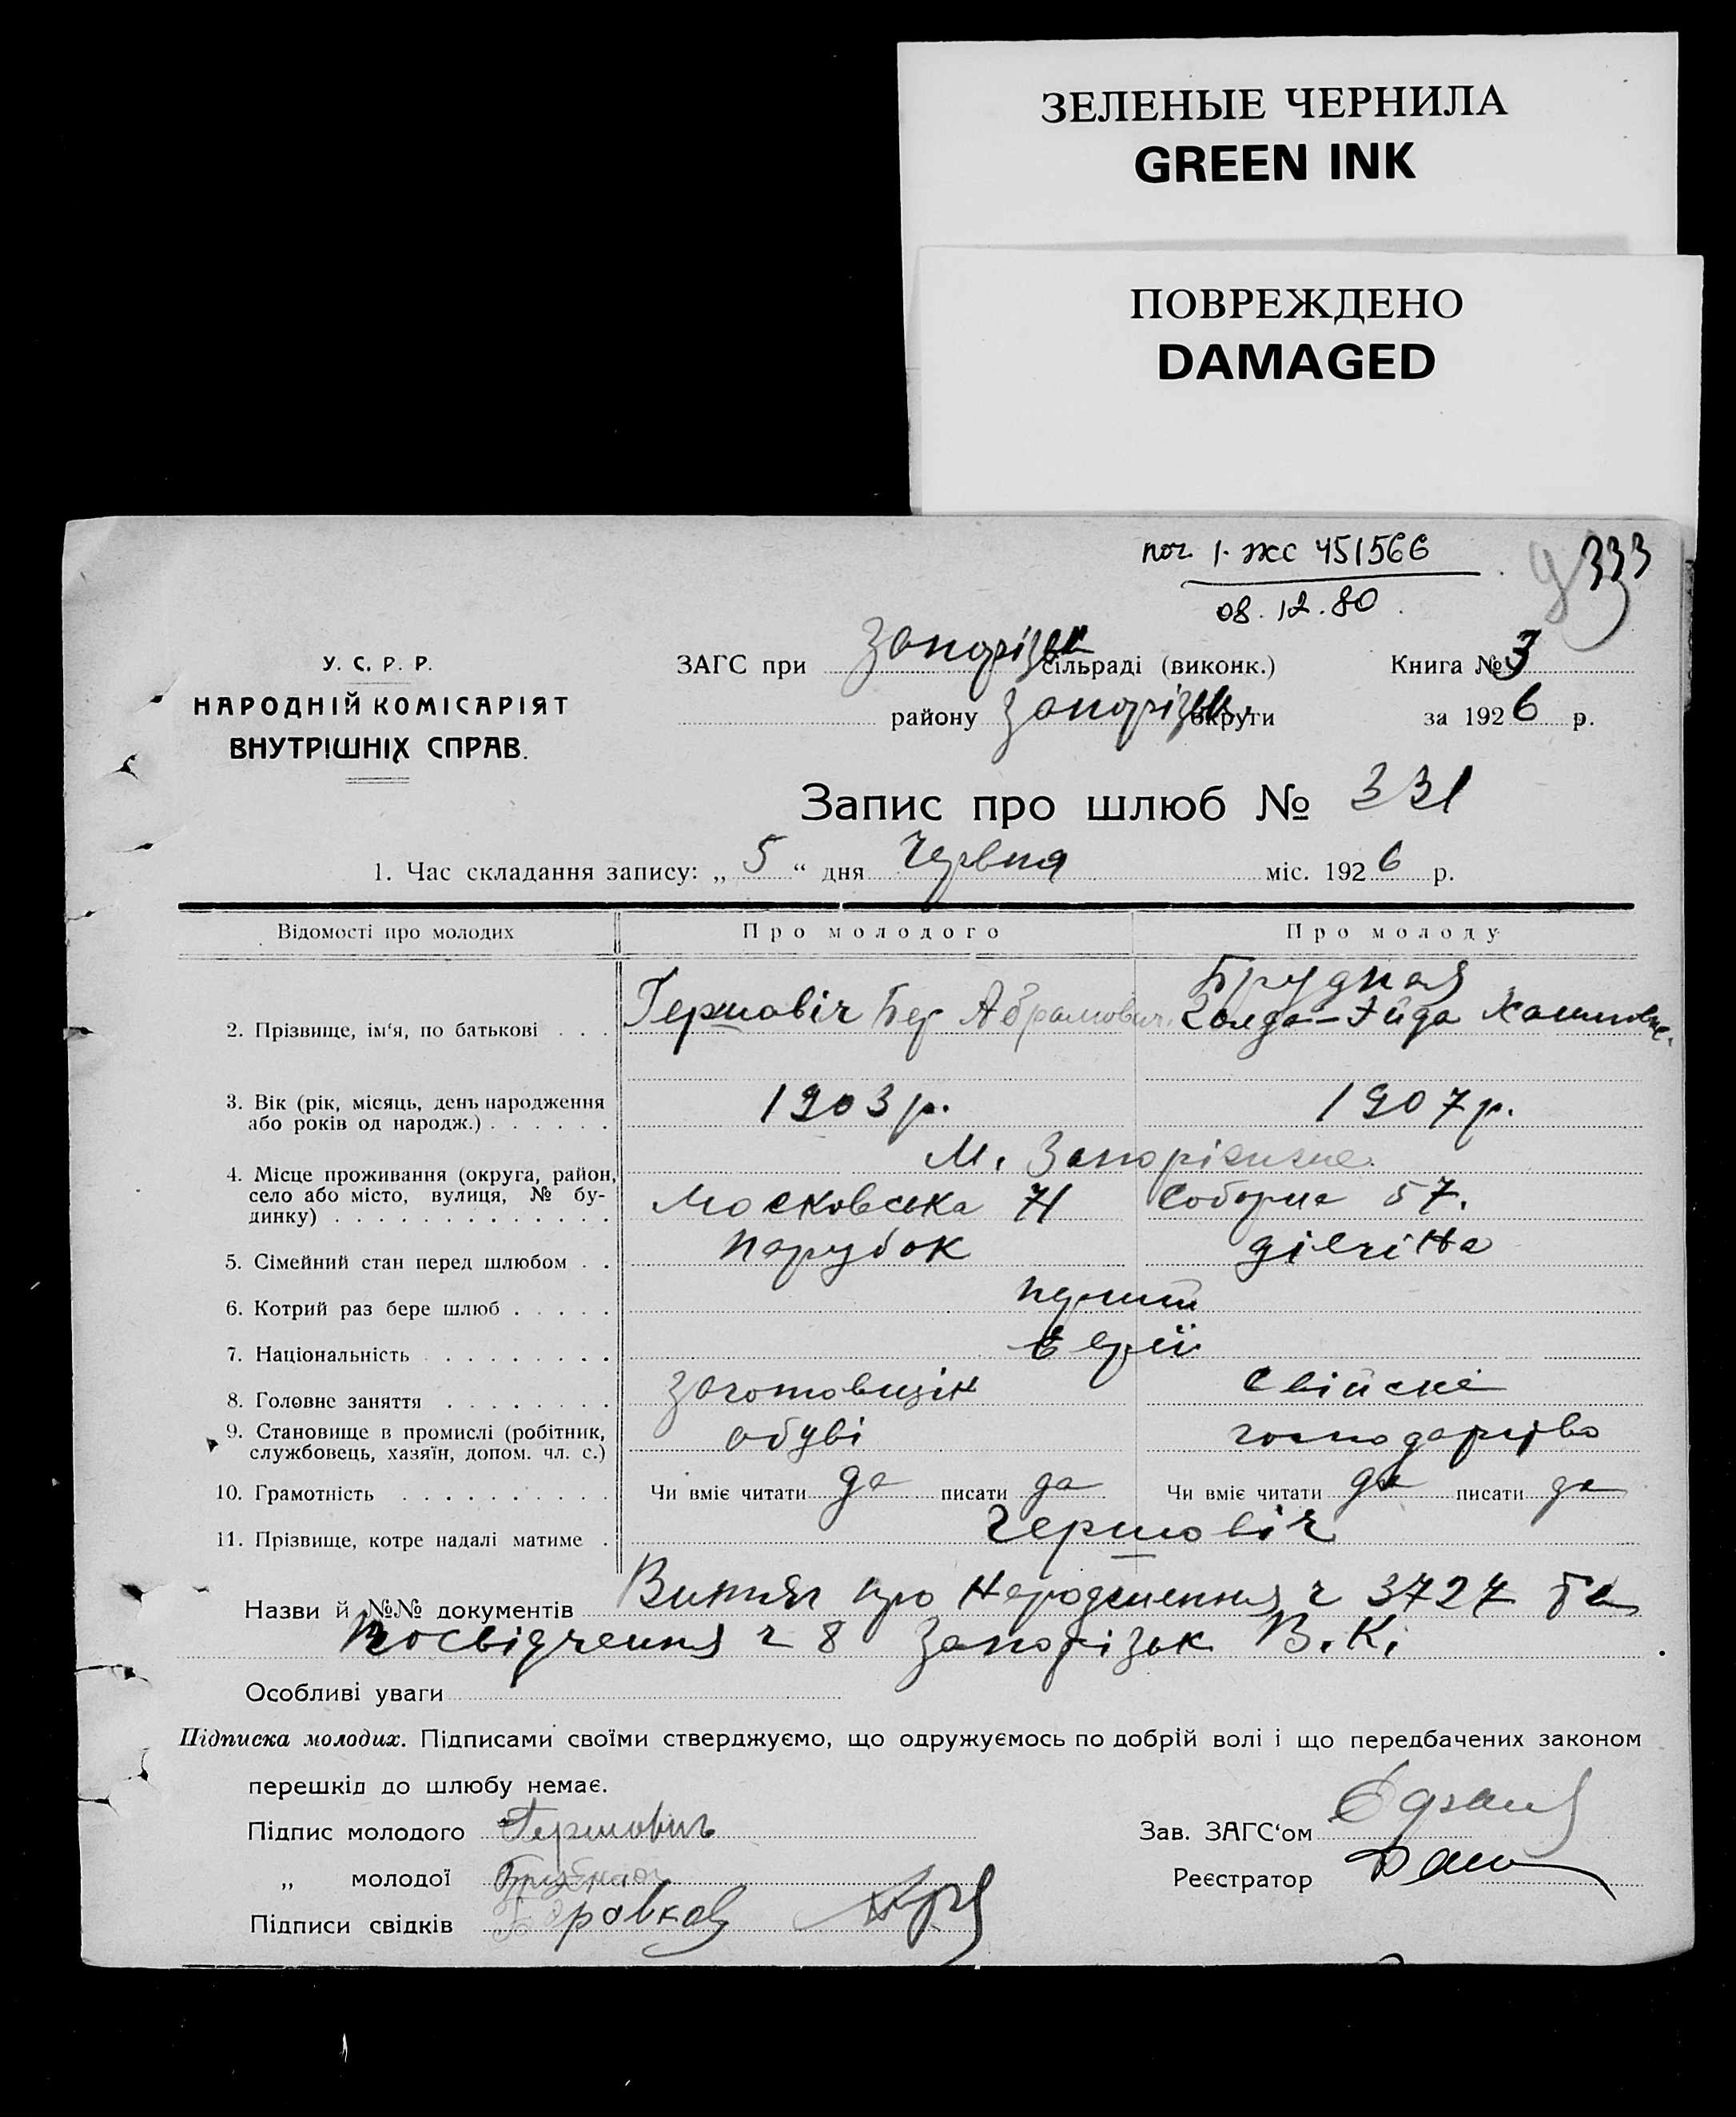 ЗЕЛЕНЫЕ ЧЕРНИЛА
GREEN INK
ПОВРЕЖДЕНО
DAMAGED
1-жс 451566
333
08.12.80
У. С. Р. Р.
НАРОДНІЙ КОМІСАРІЯТ
ВНУТРІШНІХ СПРАВ.
ЗАГС при Запорізьк сільраді (виконк.) Книга № 3
району Запорізьк. округи за 1926 р.
Запис про шлюб № 331
1. Час складання запису: „ 5 “ дня Червня міс. 1926 р.
Відомості про молодих Про молодого Про молоду
Брудная
2. Прізвище, ім'я, по батькові . . . Гершовіч Бер Абрамович. Голда-Эйда
3. Вік (рік, місяць, день народження
або років од народж.) . . . . . . 1903 р. 1907 р.
М. Запоріжже.
4. Місце проживання (округа, район,
село або місто, вулиця, № бу-
динку) . . . . . . . . . . . . . Московська 71 Соборна 57.
5. Сімейний стан перед шлюбом . . парубок дівчіна
6. Котрий раз бере шлюб . . . . . перший
7. Національність . . . . . . . . . Євреї
8. Головне заняття . . . . . . . . заготовщік свійскé
9. Становище в промислі (робітник,
службовець, хазяїн, допом. чл. с.) обуві господарство
10. Грамотність . . . . . . . . . . Чи вміє читати да писати да Чи вміє читати да писати да
11. Прізвище, котре надалі матиме . Гершовіч
Назви й №№ документів Витяг про Народження ч 3727
Посвідчення ч 8 Запорізьк В. К.
Особливі уваги
Підписка молодих. Підписами своїми стверджуємо, що одружуємось по добрій волі і що передбачених законом
перешкід до шлюбу немає.
Підпис молодого Гершовичъ Зав. ЗАГС‘ом
„ молодої Брудная Реєстратор
Підписи свідків